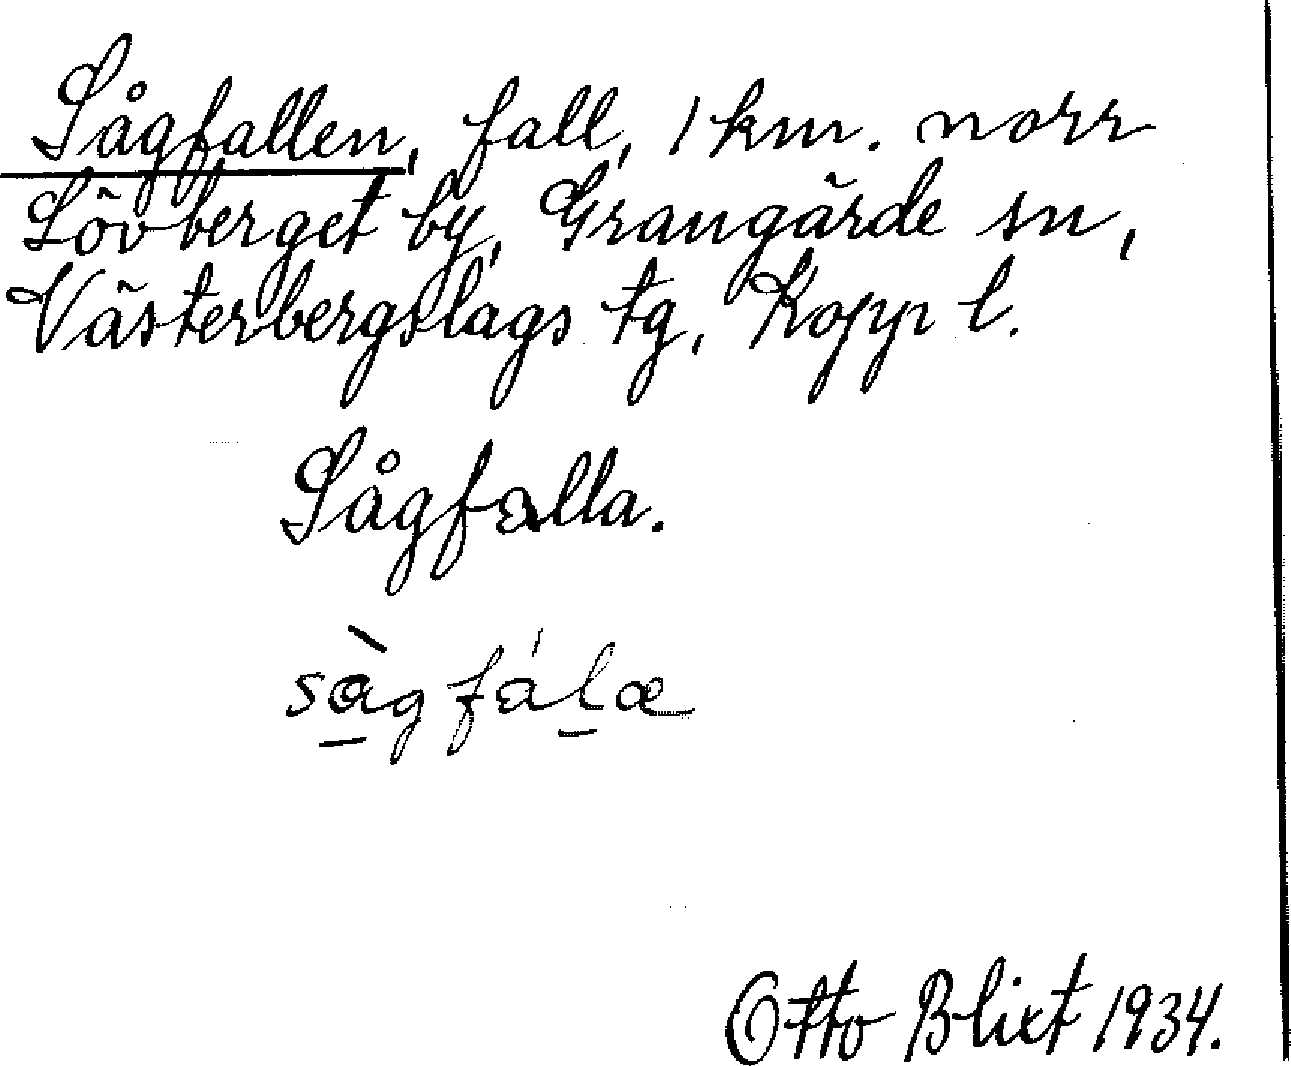 Sågfallen, fall, 1 km. norr
Lövberget by, Grangärde sn,
Västerbergslags tg, Kopp l.
Sågfalla.
Otto Blixt 1934.